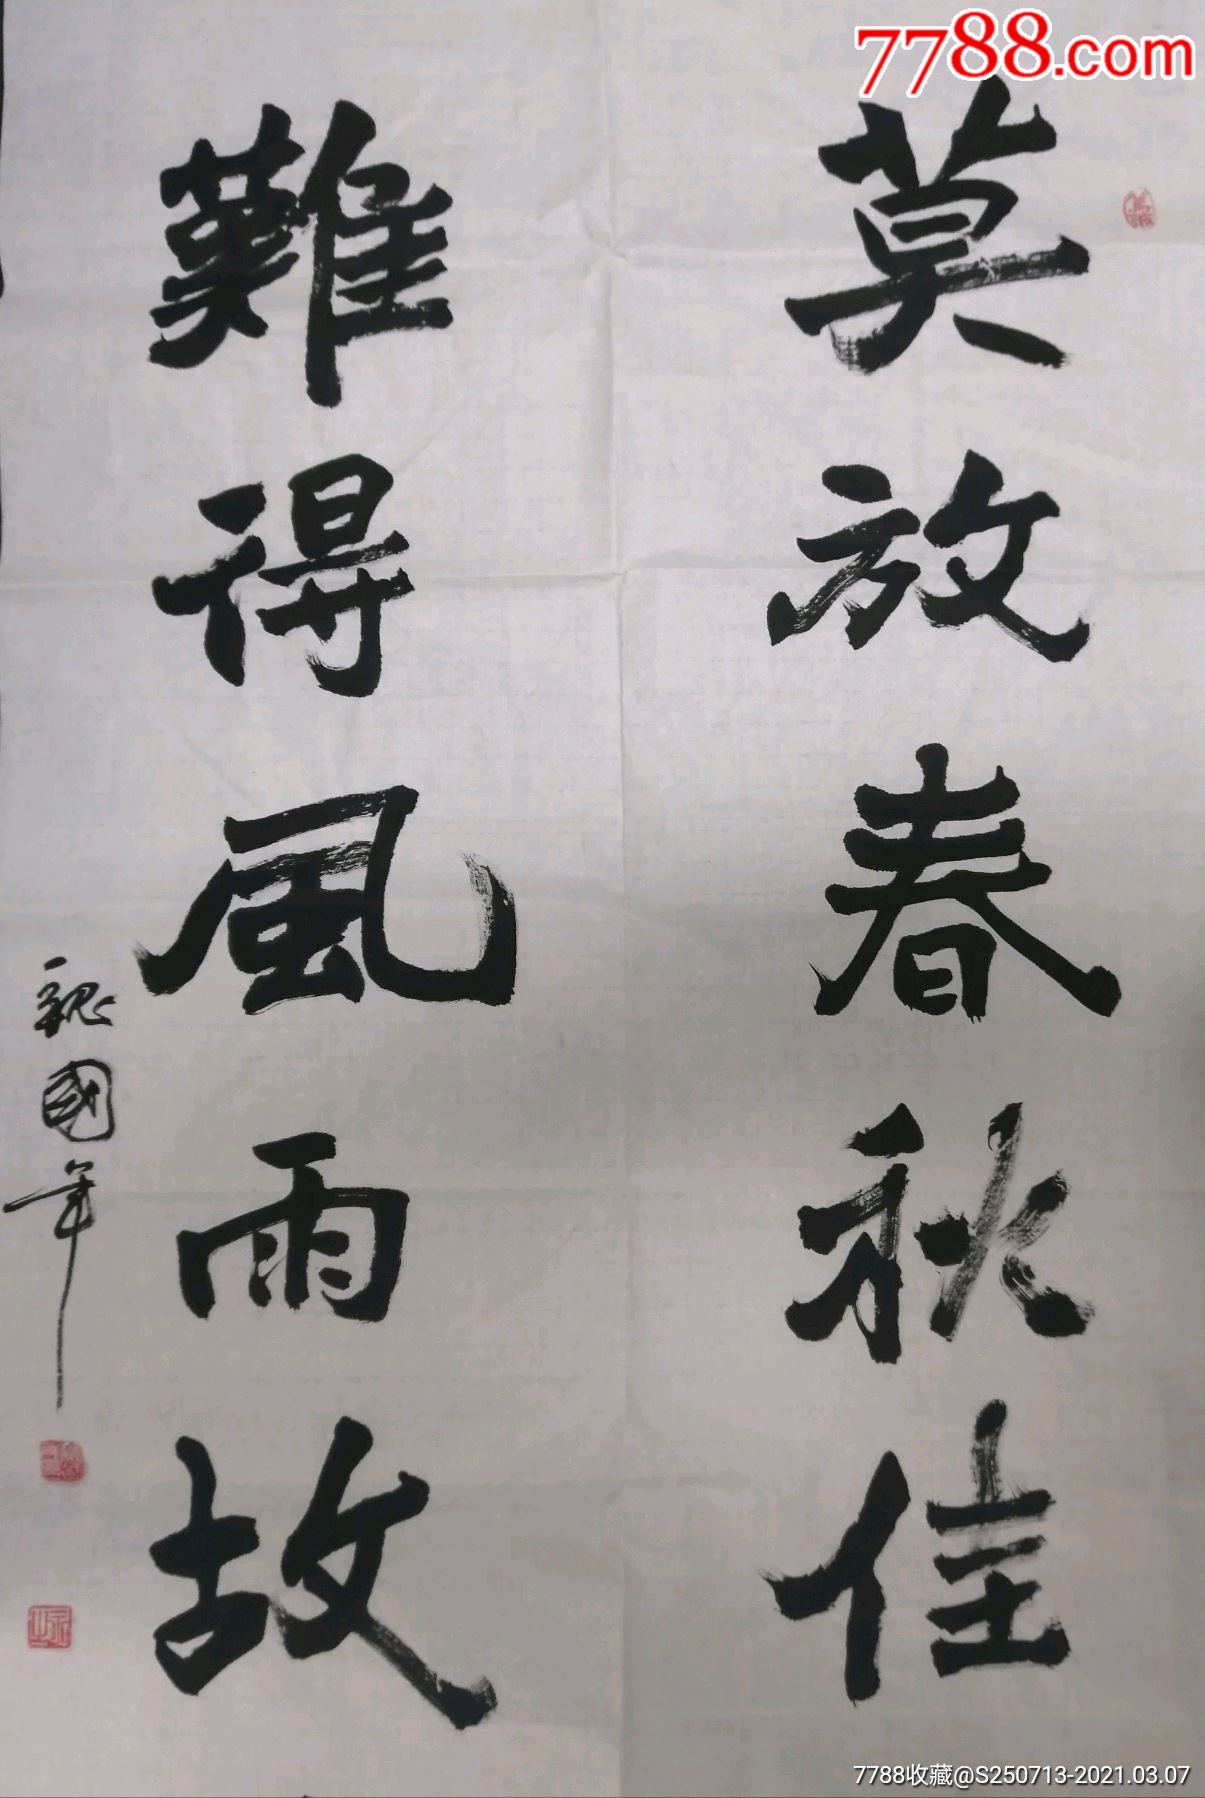 7788.com
莫放春秋佳
難得風雨故
魏國年
7788收藏@S250713-2021.03.07